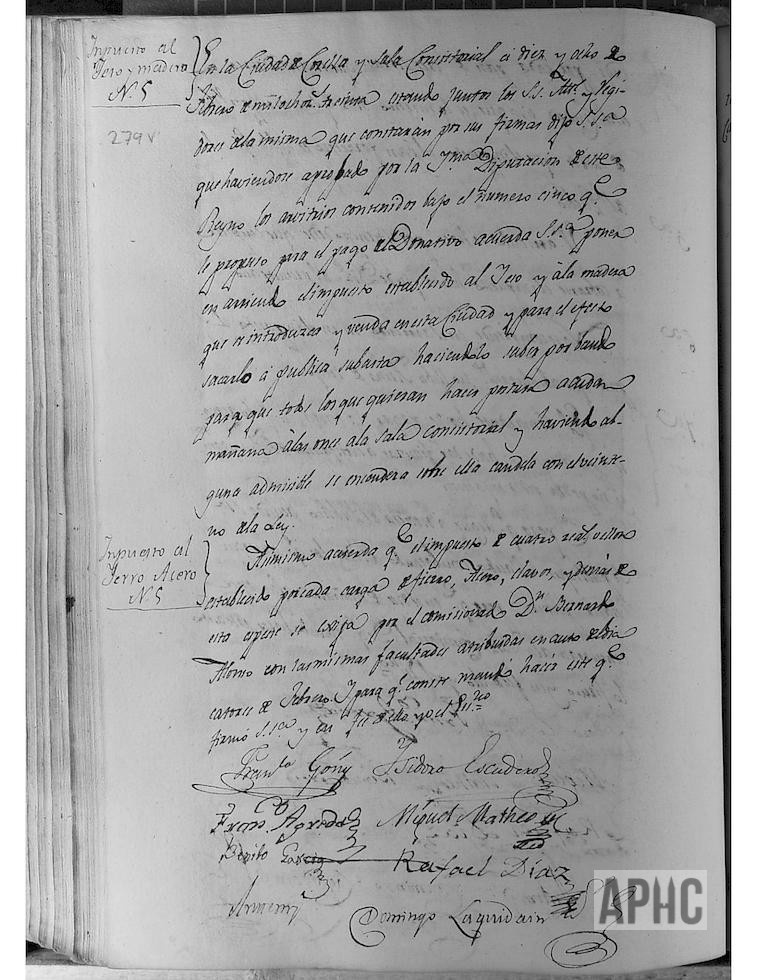 Inpuesto al
Yeso y madera
N. 5
279 v
En la Ciudad de Corella y Sala Consistorial a diez y ocho de
Febrero de mil ochoz. treinta estando juntos los S.S. Alte. y Regi-
dores de la misma que constarán por sus firmas dijo S.S.a
que haviendose aprobado por la Yma. Diputacion de este
Reyno los arvitrios contenidos bajo el numero cinco q.e
se propuso para el pago del Donativo acuerda S.S.a poner
en arriendo el impuesto establecido al Yeso y à la madera
que se introduzca y venda en esta Ciudad y para el efecto
sacarlo á publica subasta haciendolo saber por bando
para que todos los que quieran hacer postura acudan
mañana à las once a la sala consistorial y haviendo al-
guna admisible se encendera sobre ella candela con el veinte-
no de la Ley.
Inpuesto al
Ferro Acero
N. 5
Asimismo acuerda q.e el impuesto de cuatro real.s vellon
establecido por cada carga de fierro, Acero, clavos, y demás de
esta especie se exija por el comisionado D.n Bernardo
Alonso con las mismas facultades atribuidas en auto del dia
catorce de Febrero. Y para q.e conste mandó hacer este q.e
firmó S.S.a y en fee de ello yo el Ss.no
Fran.co Goñi Isidro Escudero
Fran.co Agreda Miguel Matheo
Benito Garcia Rafael Díaz
Domingo Laquidain
APHC